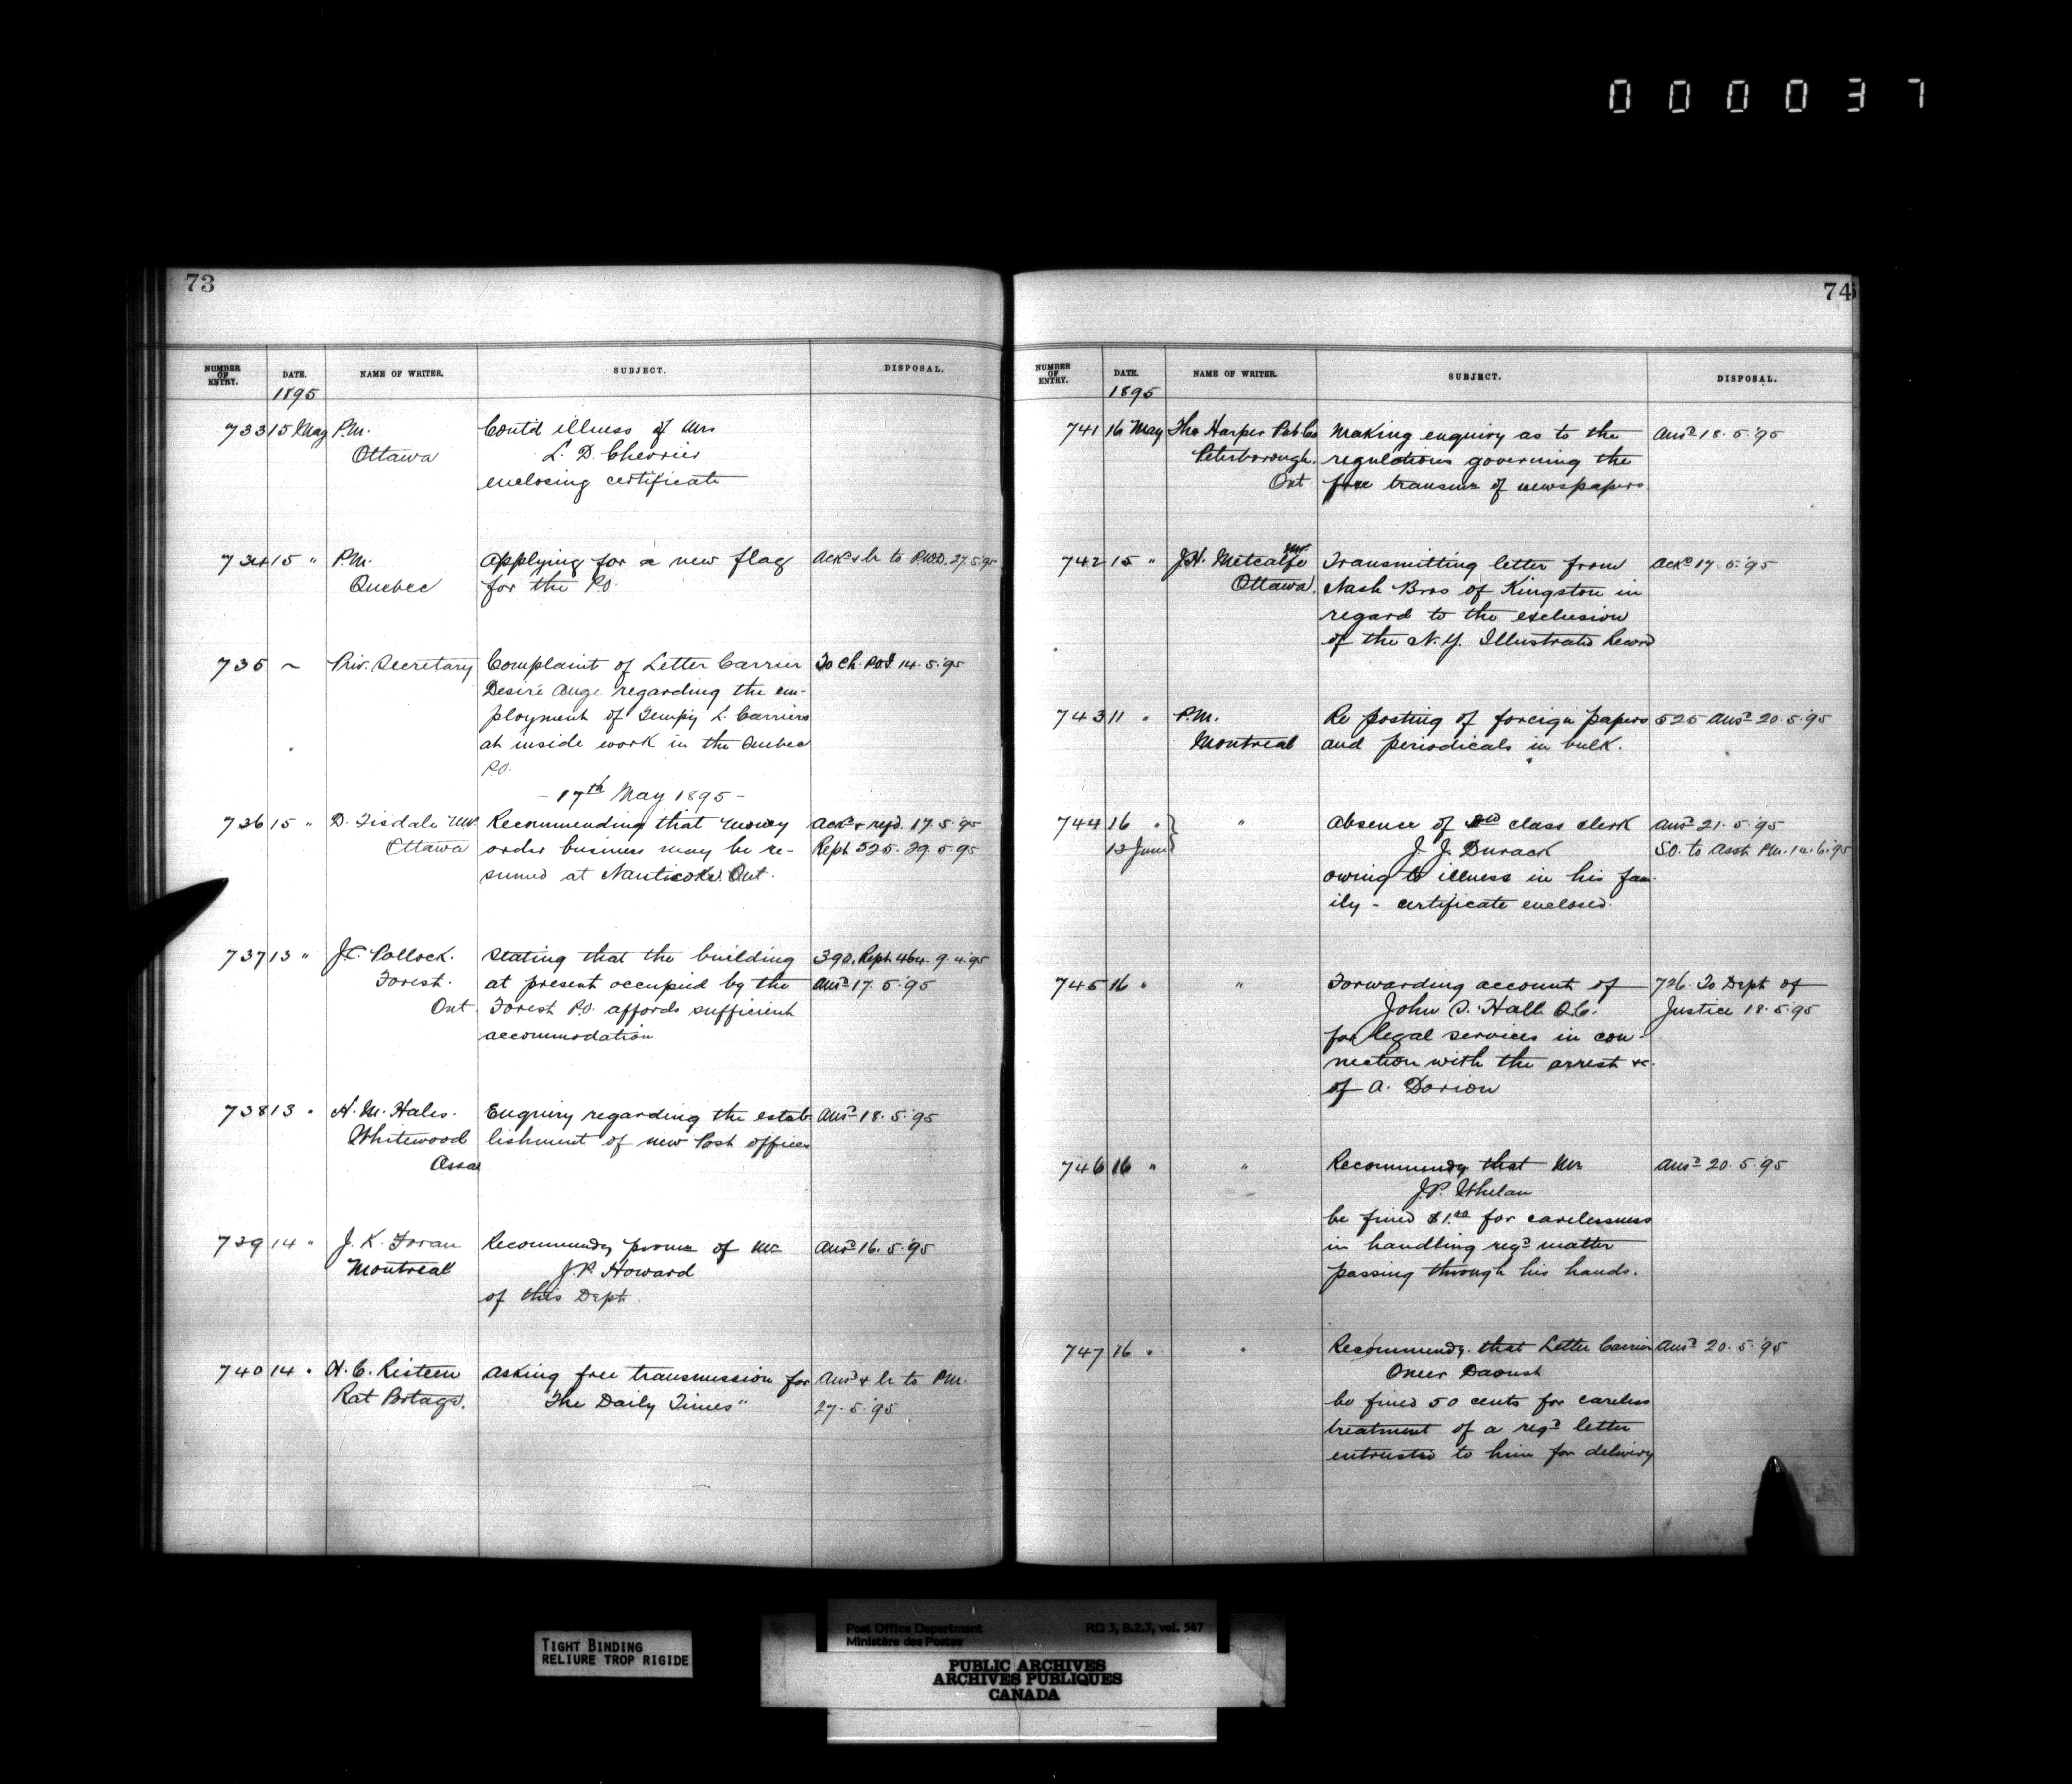 0 0 0 0 3 7
73
NUMBER OF ENTRY. DATE. NAME OF WRITER. SUBJECT. DISPOSAL.
1895
733 15 May P.M. Cont'd illness of Mrs
Ottawa L. D. Chevrier
enclosing certificate
734 15 " P.M. Applying for a new flag Ackd & lr to P.W.D. 27.5.'95
Quebec for the P.O.
735 ~ Priv. Secretary Complaint of Letter Carrier To Ch. P.O.I. 14.5.'95
Desiré Auge regarding the em-
ployment of Tempy L. Carriers
at inside work in the Quebec
P.O.
- 17th May 1895 -
736 15 " D. Tisdale M.P. Recommending that money Ackd & refd. 17.5.'95
Ottawa order business may be re- Rept 525. 29.5.95
sumed at Nanticoke Ont.
737 13 " J.C. Pollock. Stating that the building 390. Rept. 464. 9.4.'95
Forest. at present occupied by the Ansd 17.5.'95
Ont. Forest P.O. affords sufficient
accommodation
738 13 " H. M. Hales. Enquiry regarding the estab- Ansd 18.5.'95
Whitewood lishment of new Post offices
Assa
739 14 " J. K. Foran Recommendg promn of Mr Ansd 16.5.'95
Montreal J.P. Howard
of this Dept.
740 14 " H. C. Risteen Asking free transmission for Ansd & lr to P.M.
Rat Portage. "The Daily Times" 27.5.'95
74
NUMBER OF ENTRY. DATE. NAME OF WRITER. SUBJECT. DISPOSAL.
1895
741 16 May The Harper Pub Co Making enquiry as to the Ansd 18.5.'95
Peterborough. regulations governing the
Ont free transmn of newspapers.
742 15 " J.H. Metcalfe M.P. Transmitting letter from Ackd 17.5.'95
Ottawa. Nash Bros of Kingston in
regard to the exclusion
of the N.Y. Illustrated Record
743 11 " P.M. Re posting of foreign papers 525 Ansd 20.5.'95
Montreal and periodicals in bulk.
744 16 " " Absence of class clerk Ansd 21.5.'95
13 June J. J. Durack S.O. to Asst P.M. 14.6.'95
owing to illness in his fam-
ily - certificate enclosed.
745 16 " " Forwarding account of 726. To Dept of
John S. Hall Q.C. Justice 18.5.'95
for legal services in con-
nection with the arrest &c.
of A. Dorion
746 16 " " Recommendg that Mr Ansd 20.5.'95
J.P. Whelan
be fined $1.00 for carelessness
in handling regd matter
passing through his hands.
747 16 " " Recommendg. that Letter Carrier Ansd 20.5.'95
Omer Daoust
be fined 50 cents for careless
treatment of a regd letter
entrusted to him for delivery
TIGHT BINDING
RELIURE TROP RIGIDE
Post Office Department RG 3, B.2.3, vol. 547
Ministère des Postes
PUBLIC ARCHIVES
ARCHIVES PUBLIQUES
CANADA